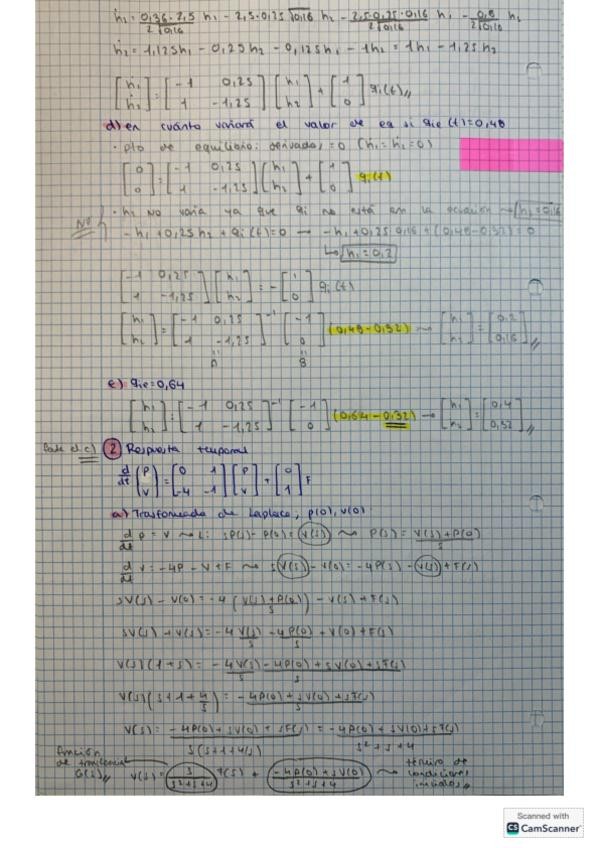 ḣ₁ = 0,36·2,5/2√0,16 h₁ - 2,5·0,25 √0,16 h₂ - 2,5·0,25·0,16/2√0,16 h₁ - 0,8/2√0,16 h₂
ḣ₂ = 1,125h₁ - 0,25h₂ - 0,125h₁ - 1h₂ = 1h₁ - 1,25h₂
[ḣ₁ ḣ₂] = [-1 0,25 1 -1,25] [h₁ h₂] + [1 0] qi(t)
d) en cuánto variará el valor de eq si qie(t)=0,48
· pto de equilibrio: derivadas = 0 (ḣ₁ = ḣ₂ = 0)
[0 0] = [-1 0,25 1 -1,25] [h₁ h₂] + [1 0] qi(t)
NO · h₂ no varia ya que qi no está en la ecuación → h₂ = 0,16
-h₁ + 0,25h₂ + qi(t) = 0 → -h₁ + 0,25·0,16 + (0,48-0,32) = 0
↳ h₁ = 0,2
[-1 0,25 1 -1,25] [h₁ h₂] = -[1 0] qi(t)
[h₁ h₂] = [-1 0,25 1 -1,25]⁻¹ [-1 0] (0,48-0,32) → [h₁ h₂] = [0,2 0,16]
A B
e) qie=0,64
[h₁ h₂] = [-1 0,25 1 -1,25]⁻¹ [-1 0] (0,64-0,32) → [h₁ h₂] = [0,4 0,32]
2 Respuesta temporal
d/dt (P V) = [0 1 -4 -1] [P V] + [0 1] F
a) Trasformada de Laplace, p(0), v(0)
d/dt P = V → L: sP(s) - P(0) = V(s) → P(s) = V(s)+P(0)/s
d/dt V = -4P - V + F → sV(s) - V(0) = -4P(s) - V(s) + F(s)
sV(s) - V(0) = -4 (V(s)+P(0)/s) - V(s) + F(s)
sV(s) + V(s) = -4V(s)/s - 4P(0)/s + V(0) + F(s)
V(s)(1+s) = -4V(s) - 4P(0) + sV(0) + sF(s)/s
V(s)(s+1+4/s) = -4P(0) + sV(0) + sF(s)/s
V(s) = -4P(0) + sV(0) + sF(s)/s(s+1+4/s) = -4P(0) + sV(0) + sF(s)/s²+s+4
función de transferencia G(s) V(s) = s/s²+s+4 F(s) + -4P(0)+sV(0)/s²+s+4 → término de condiciones iniciales
Scanned with
CS CamScanner